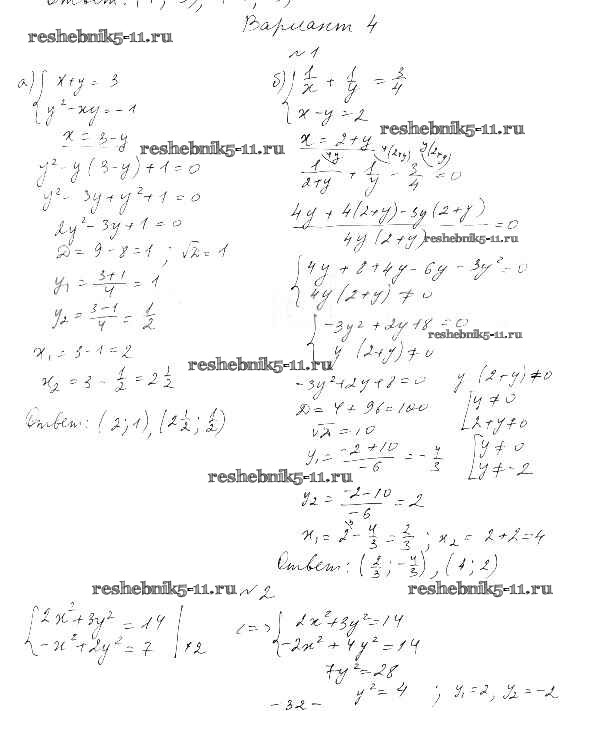 Ответ: (1; 3), (
Вариант 4
reshebnik5-11.ru
№1
а) { x+y = 3
y² - xy = -1
x = 3-y
reshebnik5-11.ru
y² - y(3-y)+1=0
y² - 3y + y² + 1 = 0
2y² - 3y + 1 = 0
D = 9-8 = 1 ; √D = 1
y₁ = (3+1)/4 = 1
y₂ = (3-1)/4 = 1/2
x₁ = 3-1 = 2
x₂ = 3 - 1/2 = 2 1/2
Ответ: (2; 1), (2 1/2; 1/2)
б) { 1/x + 1/y = 3/4
x-y = 2
reshebnik5-11.ru
x = 2+y
4y 4(2+y) y(2+y)
1/(2+y) + 1/y - 3/4 = 0
(4y + 4(2+y) - 3y(2+y))/(4y(2+y)) = 0
reshebnik5-11.ru
{ 4y + 8 + 4y - 6y - 3y² = 0
4y(2+y) ≠ 0
{ -3y² + 2y + 8 = 0
y(2+y) ≠ 0
reshebnik5-11.ru
reshebnik5-11.ru
-3y² + 2y + 8 = 0 y(2+y) ≠ 0
D = 4 + 96 = 100 [ y ≠ 0
√D = 10 2+y ≠ 0
y₁ = (-2+10)/-6 = -4/3 [ y ≠ 0
y ≠ -2
reshebnik5-11.ru
y₂ = (-2-10)/-6 = 2
x₁ = 2 - 4/3 = 2/3 ; x₂ = 2+2 = 4
Ответ: (2/3; -4/3), (4; 2)
reshebnik5-11.ru
№2
reshebnik5-11.ru
{ 2x² + 3y² = 14 <=> { 2x² + 3y² = 14
-x² + 2y² = 7 | ·2 -2x² + 4y² = 14
7y² = 28
y² = 4 ; y₁ = 2, y₂ = -2
- 32 -